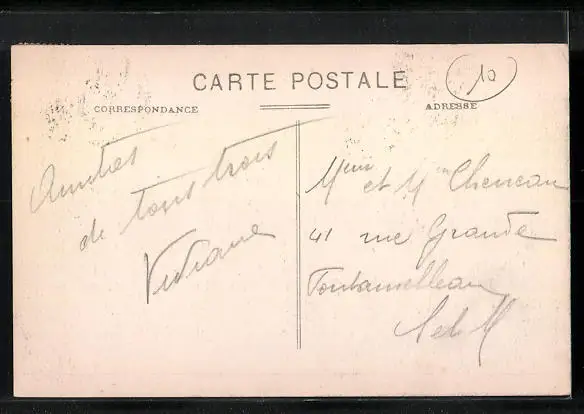 CARTE POSTALE
10
CORRESPONDANCE
ADRESSE
Amitiés
de tous trois
Viviane
Mme et Mr Cheneau
41 rue Grande
Fontainebleau
S et M